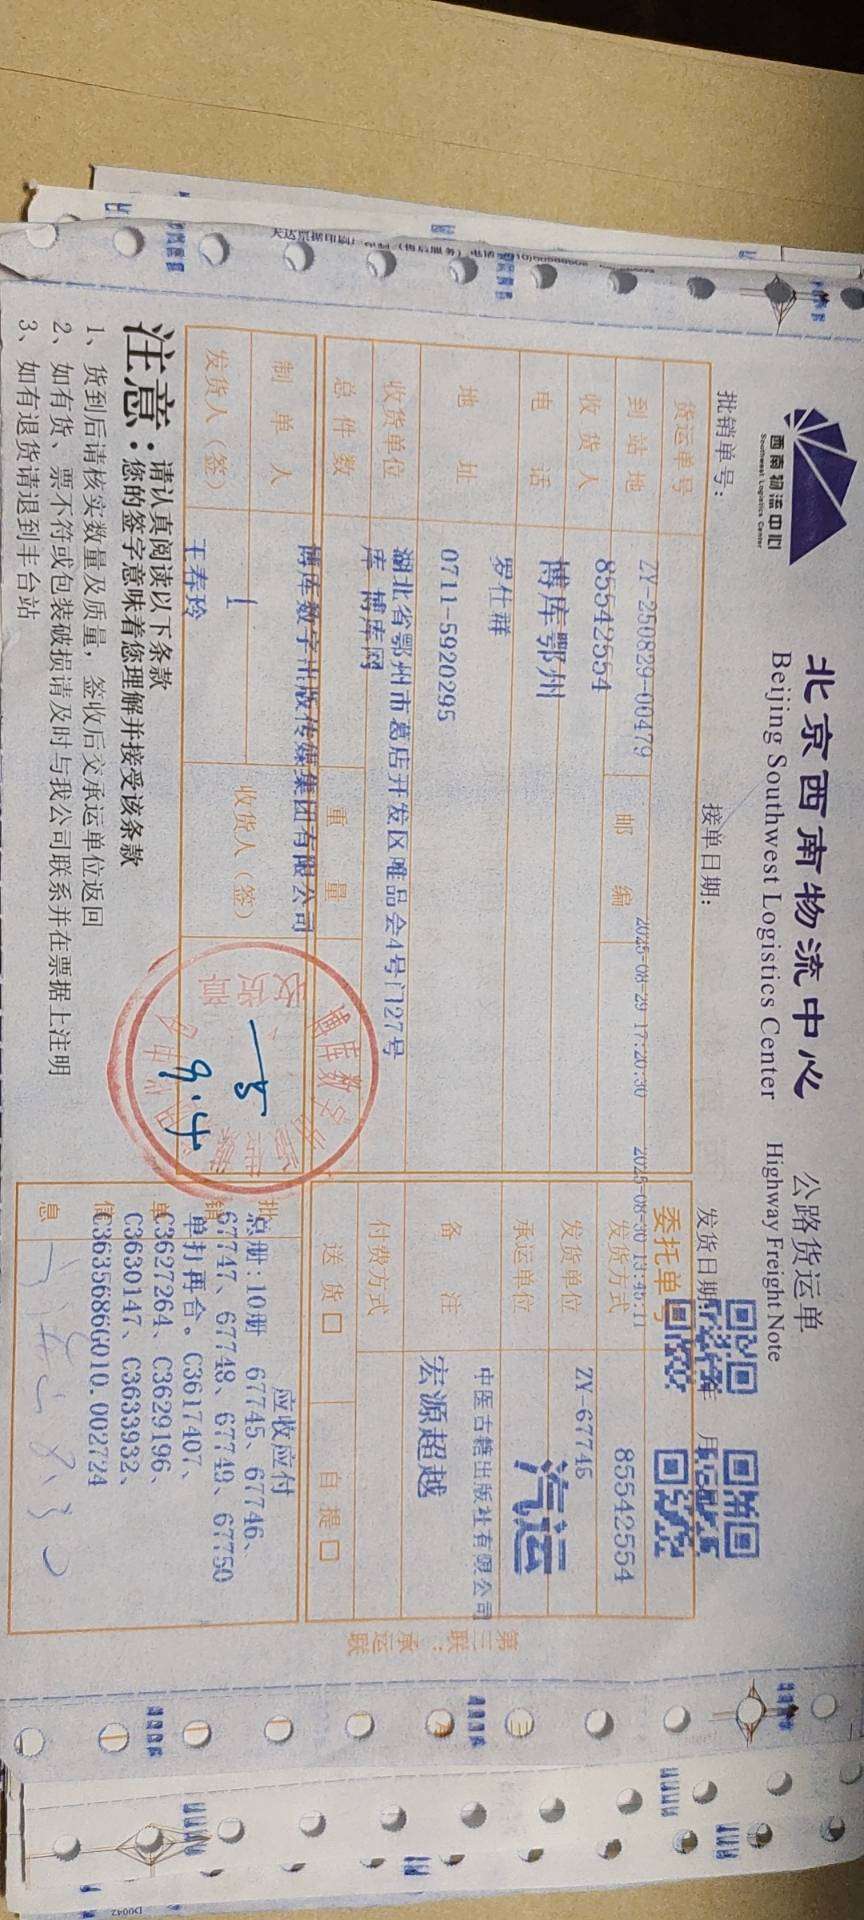 西南物流中心
Southwest Logistics Center
北京西南物流中心
Beijing Southwest Logistics Center
公路货运单
Highway Freight Note
批销单号：
接单日期：
2025-08-29 17:20:30
发货日期：
年 月
货运单号
ZY-250829-00479
委托单号
85542554
到站地
85542554
邮编
发货方式
汽运
收货人
博库鄂州
发货单位
ZY-67745
电话
罗仕群
承运单位
中医古籍出版社有限公司
地址
0711-5920295
备注
宏源超越
收货单位
湖北省鄂州市葛店开发区唯品会4号门27号
库 博库网
付费方式
总件数
重量
送货□
自提□
博库数字出版传媒集团有限公司
制单人
1
收货人（签）
发货人（签）
王春玲
9.4
收货章
批销单储息
应收应付
总册:10册 67745、67746、
67747、67748、67749、67750
单打再合。C3617407、
C3627264、C3629196、
C3630147、C3633932、
C3635686G010.002724
注意：
请认真阅读以下条款
您的签字意味着您理解并接受该条款
1、货到后请核实数量及质量，签收后交承运单位返回
2、如有货、票不符或包装破损请及时与我公司联系并在票据上注明
3、如有退货请退到丰台站
第三联：承运联